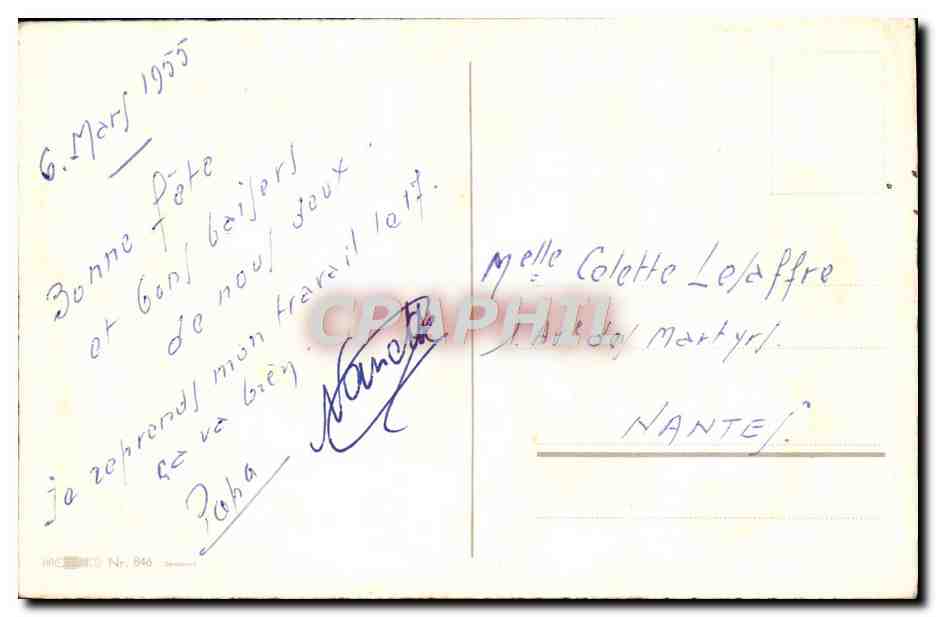 6. Mars 1955
Bonne fête
et bons baisers
de nous deux.
je reprends mon travail le 17.
ça va bien.
Papa Nanette
Melle Colette Lesaffre
des Martyrs.
NANTES.
Nr. 846
CPAPHIL